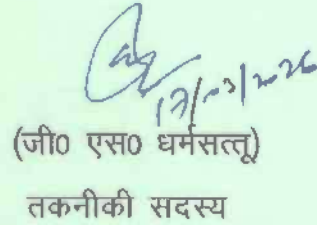 17/02/2026
(जी0 एस0 धर्मसत्तू)
तकनीकी सदस्य